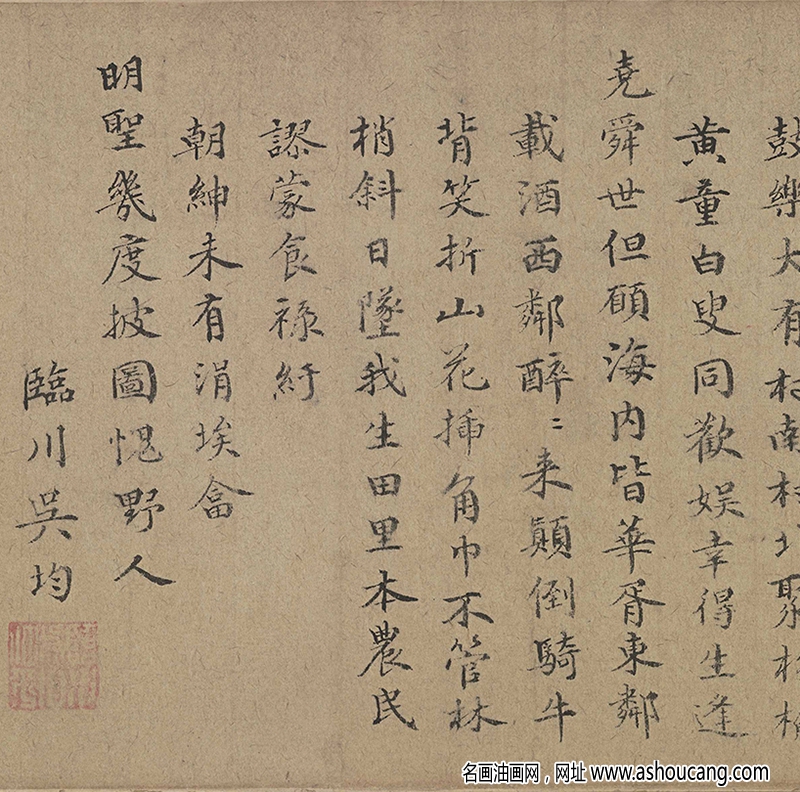 鼓樂大有村南村北聚
黄童白叟同歡娱幸得生逢
堯舜世但願海内皆華胥東鄰
載酒西鄰醉〻来顛倒騎牛
背笑折山花插角巾不管林
梢斜日墜我生田里本農民
謬蒙食祿紆
朝紳未有涓埃畣
明聖幾度披圖愧野人
臨川吳均
名画油画网，网址 www.ashoucang.com